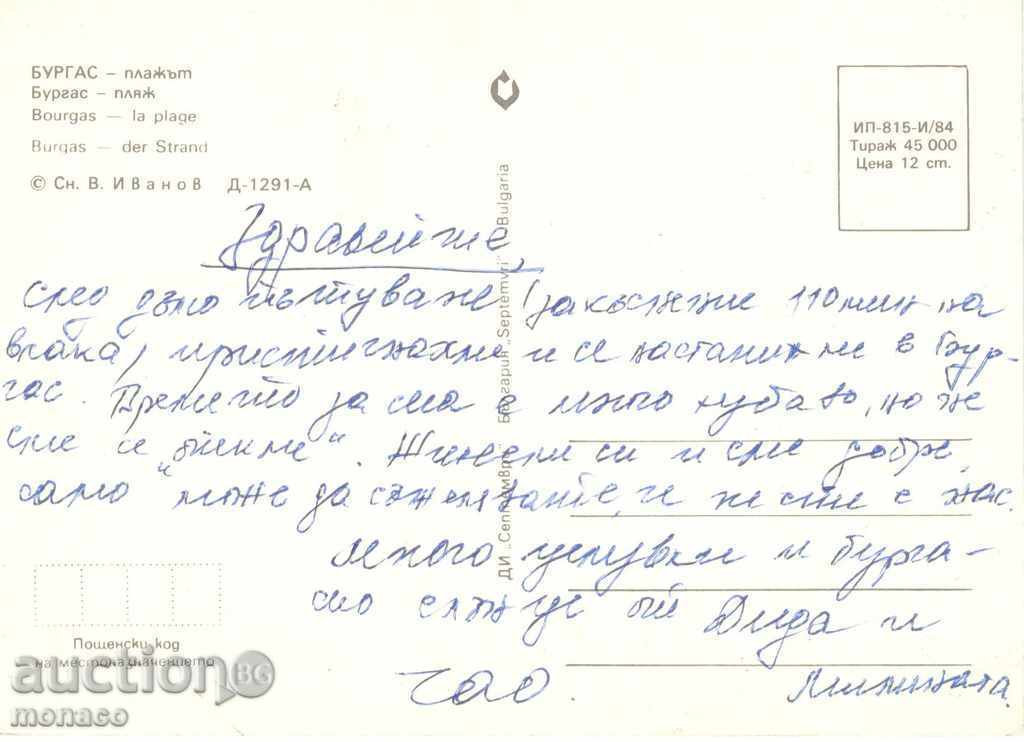 БУРГАС – плажът
Бургас – пляж
Bourgas — la plage
Burgas — der Strand
© Сн. В. Иванов Д-1291-А
ИП-815-И/84
Тираж 45 000
Цена 12 ст.
ДИ „Септември“ България „Septemvri“ Bulgaria
Здравейте,
След дълго пътуване (закъснение 110 мин на
влака) пристигнахме и се настанихме в Бур-
гас. Времето за сега е много хубаво, но же
сме се „пекли“. Живеем си и сме добре,
само може да съжелявате, че не сте с нас.
Много целувки и бурга-
ско слънце от Дида и
чао. Милената.
Пощенски код
на местоназначението
auction BG
monaco